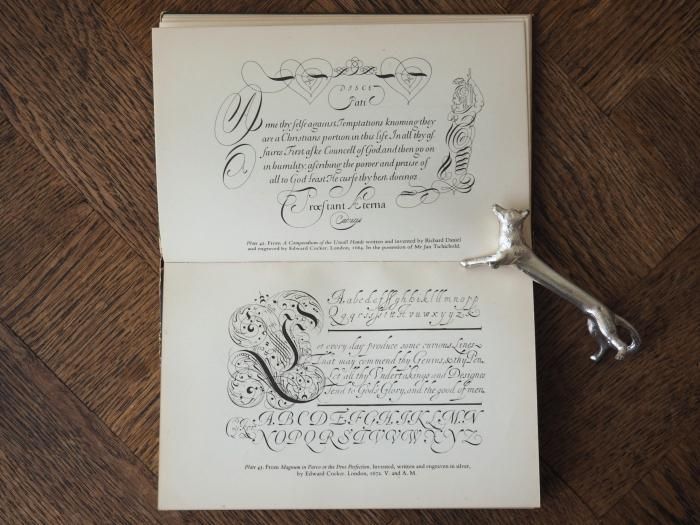 DISCE
Pati
Arme thy selfe against Temptations knowing they
are a Christians portion in this life In all thy af
faires First aske Councell of God, and then go on
in humility, ascribing the power and praise of
all to God least He curse thy best doeings
Prœstant Æterna
Caducis
Plate 42. From A Compendium of the Usuall Hands written and invented by Richard Daniel
and engraved by Edward Cocker. London, 1664. In the possession of Mr Jan Tschichold.
A.a b c d e f g h h i k l ll m n o p p
Q q r s t u v w x y z &
Let every day produce some curious Lines
That may commend thy Genius, & thy Pen,
Let all thy Vndertakings and Designes
Tend to Gods Glory, and the good of men.
A.B.C.D.E.F.G.H.I.K.L.M.N
N.O.P.Q.R.S.T.V.V.W.X.Y.Z
Plate 43. From Magnum in Parvo or the Pens Perfection. Invented, written and engraven in silver,
by Edward Cocker. London, 1672. V. and A. M.